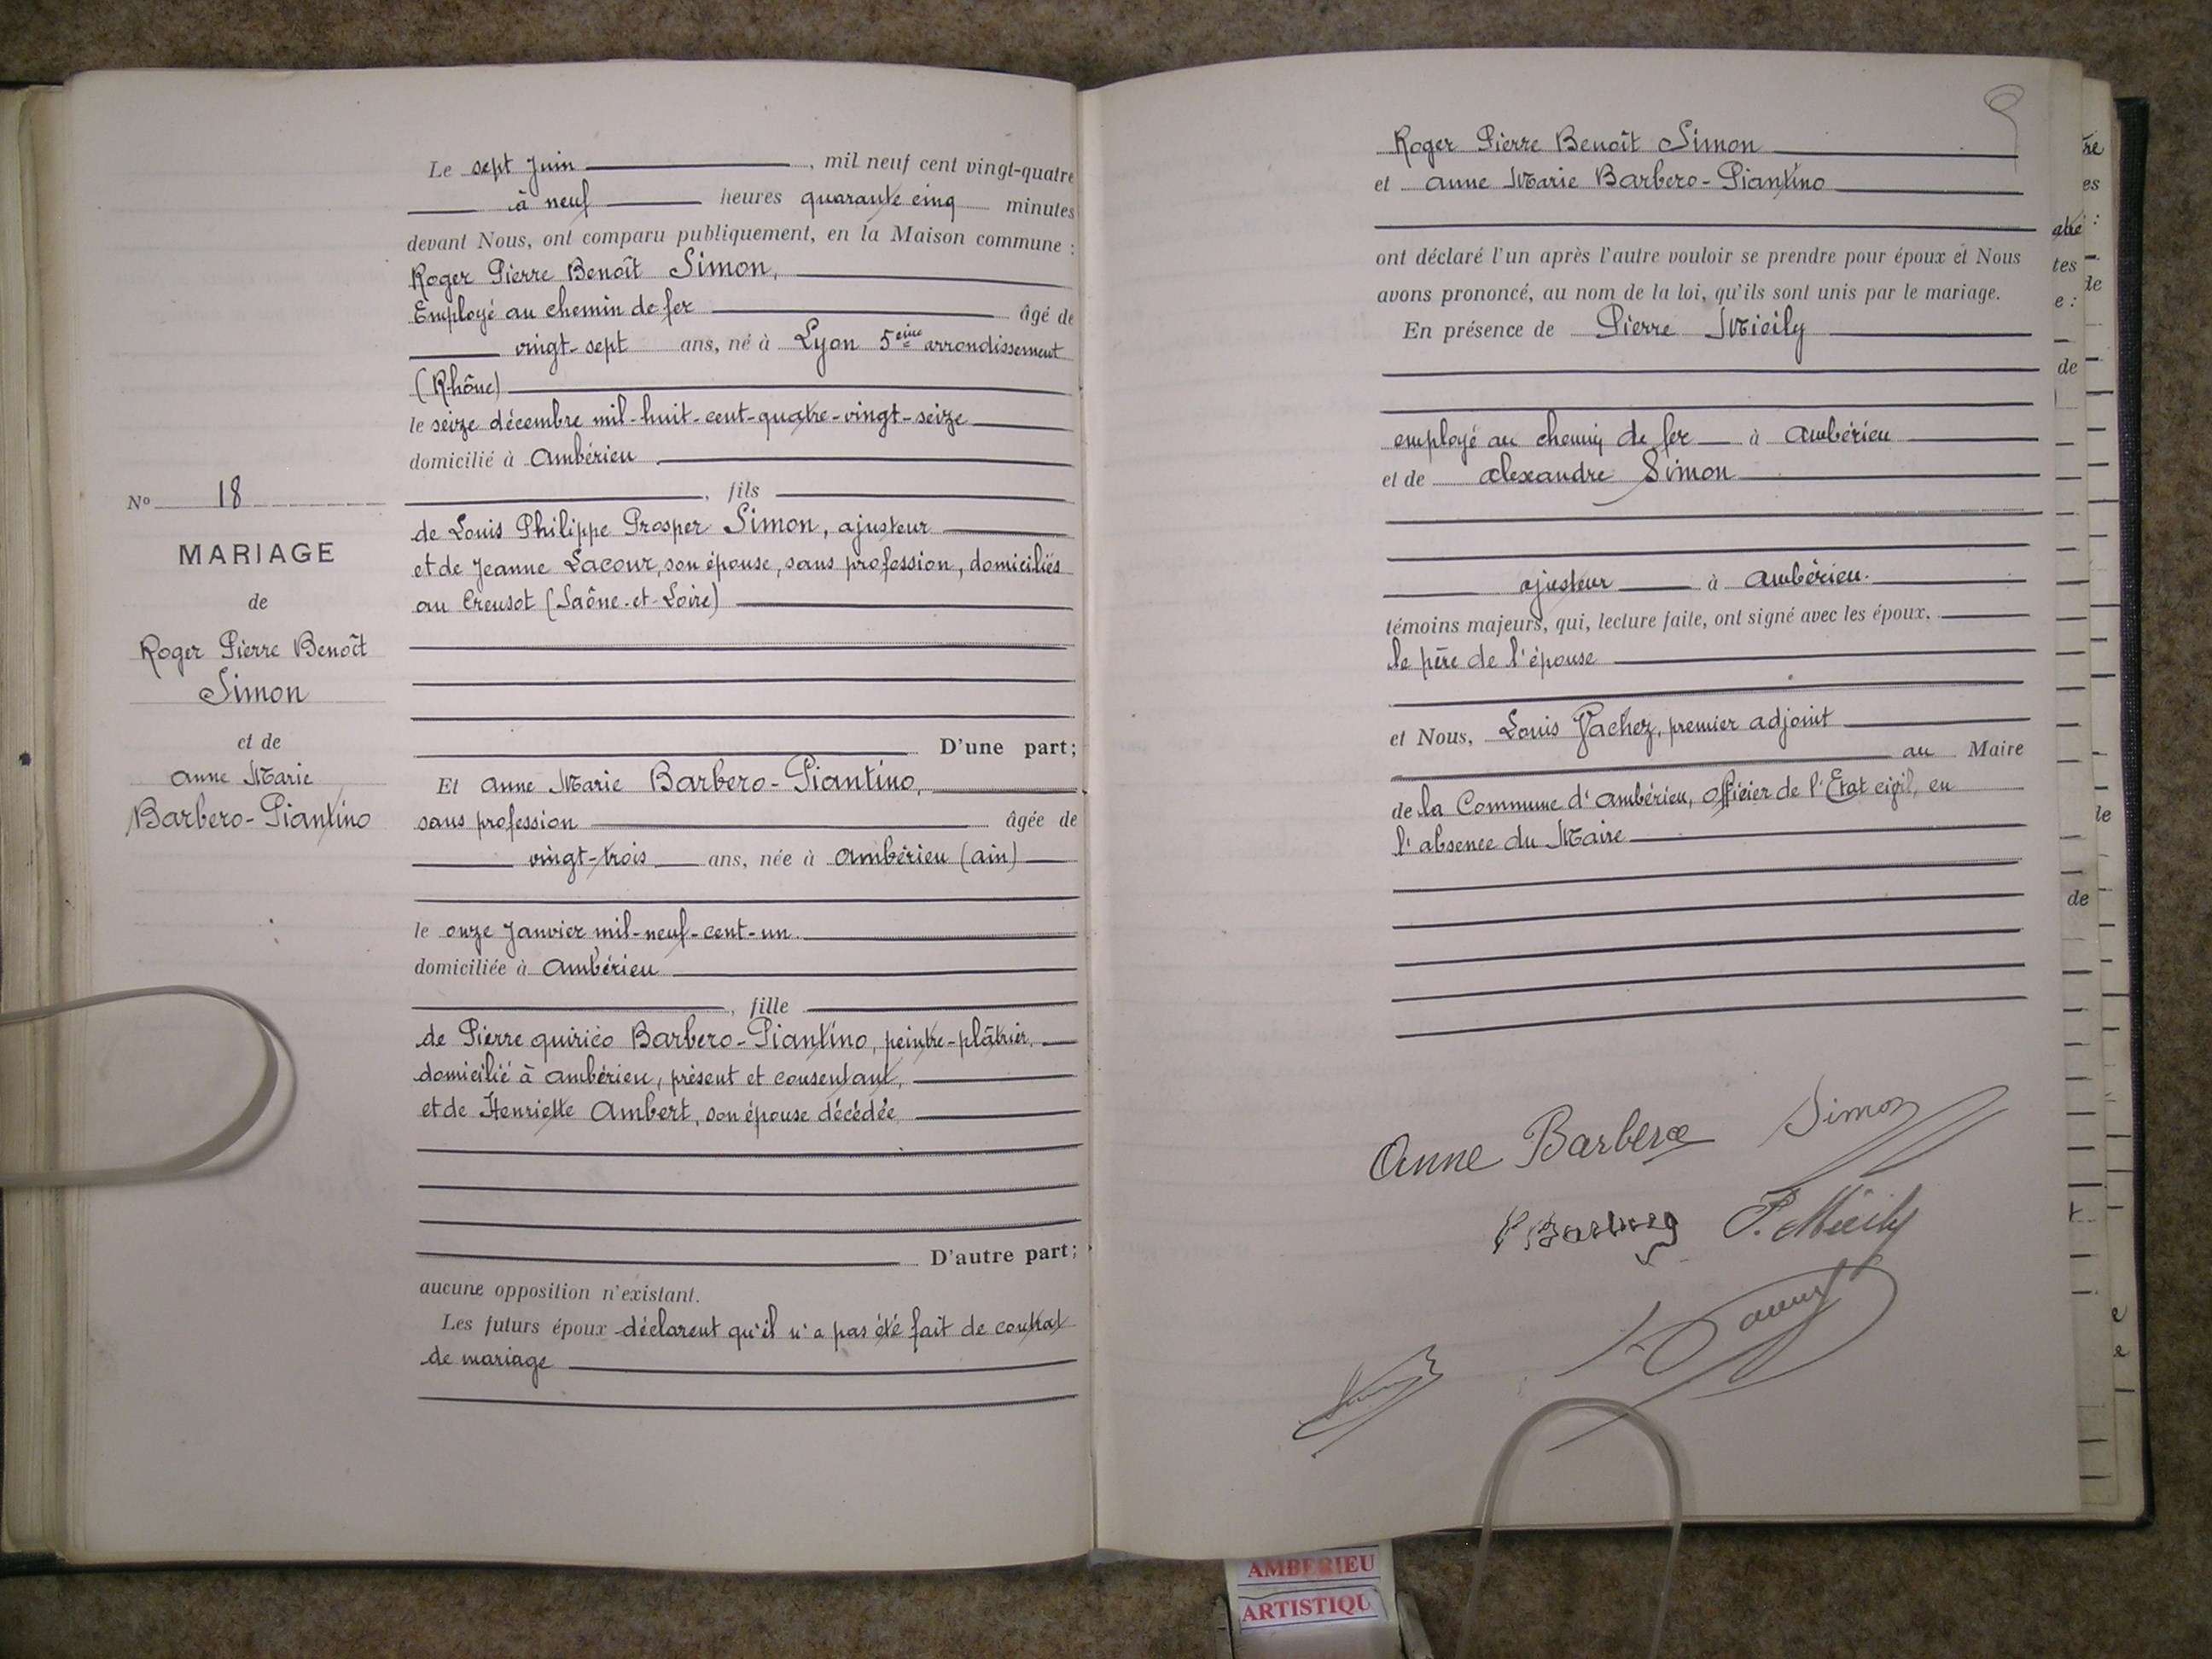 Le sept Juin, mil neuf cent vingt-quatre
à neuf heures quarante cinq minutes
devant Nous, ont comparu publiquement, en la Maison commune :
Roger Pierre Benoît Simon,
Employé au chemin de fer âgé de
vingt-sept ans, né à Lyon 5eime arrondissement
(Rhône)
le seize décembre mil-huit-cent-quatre-vingt-seize
domicilié à Ambérieu
, fils
de Louis Philippe Prosper Simon, ajusteur
et de Jeanne Lacour, son épouse, sans profession, domiciliés
au Creusot (Saône-et-Loire)
D'une part;
Et Anne Marie Barbero-Piantino,
sans profession âgée de
vingt-trois ans, née à Ambérieu (ain)
le onze Janvier mil-neuf-cent-un
domiciliée à Ambérieu
, fille
de Pierre quirico Barbero-Piantino, peintre-plâtrier,
domicilié à Ambérieu, présent et consentant,
et de Henriette Ambert, son épouse décédée
D'autre part;
aucune opposition n'existant.
Les futurs époux déclarent qu'il n'a pas été fait de contrat
de mariage
No 18
MARIAGE
de
Roger Pierre Benoît
Simon
et de
Anne Marie
Barbero-Piantino
Roger Pierre Benoît Simon
et Anne Marie Barbero-Piantino
ont déclaré l'un après l'autre vouloir se prendre pour époux et Nous
avons prononcé, au nom de la loi, qu'ils sont unis par le mariage.
En présence de Pierre Micily
employé au chemin de fer à Ambérieu
et de Alexandre Simon
ajusteur à Ambérieu.
témoins majeurs, qui, lecture faite, ont signé avec les époux.
le père de l'épouse
et Nous, Louis Pachez, premier adjoint
au Maire
de la Commune d'Ambérieu, Officier de l'Etat civil, en
l'absence du Maire
Anne Barbero
Simon
P. Micily
AMBERIEU
ARTISTIQU